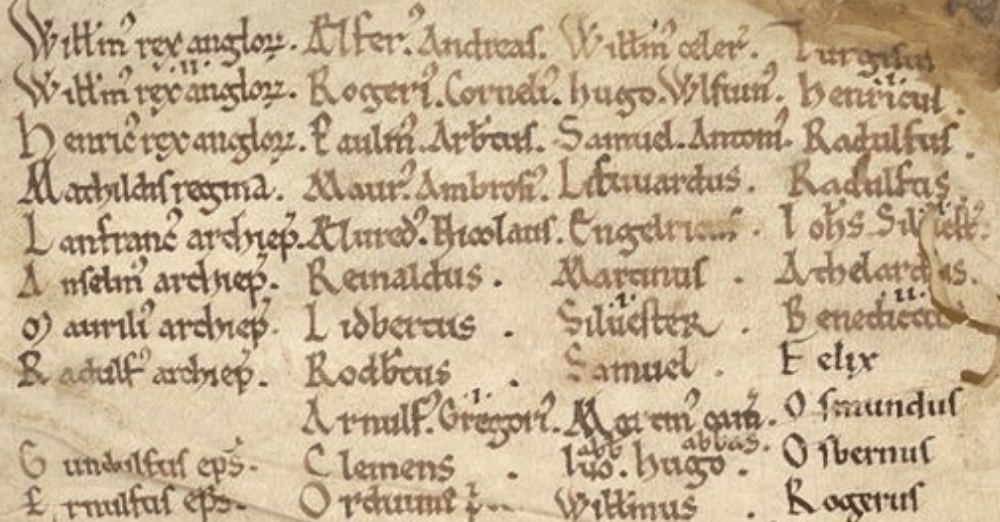 Willm̄ rex anglorꝝ. Ælfer᾽. Andreas. Willm̄ celer᾽.
Willm̄ rex .ii. anglorꝝ. Roger᾽. Corneli᾽. hugo. Wlfuin᾽. henricus .i.
Henric᾽ rex anglorꝝ. Paulin᾽. Arb̄tus. Samuel. Anton᾽. Radulfus.
Mathildis regina. Maur᾽. Ambrosi᾽. Lifuuardus. Radulfus
Lanfranc᾽ archiep̄. Ælured᾽. Nicolaus. Ioh̄s
Anselm᾽ archiep̄. Reinaldus. Martinus. Athelardus.
Maurili᾽ archiep̄. Lidbertus. Siluester .i. Benedictus .ii.
Radulf᾽ archiep̄. Rodb̄tus. Samuel. Felix
Arnulf᾽ .i. Gregori᾽. Martin᾽ Osmundus
Gundulfus ep̄s. Clemens. Iuo abb. hugo abbas. Osbernus
Ernulfus ep̄s. Willmus. Rogerus